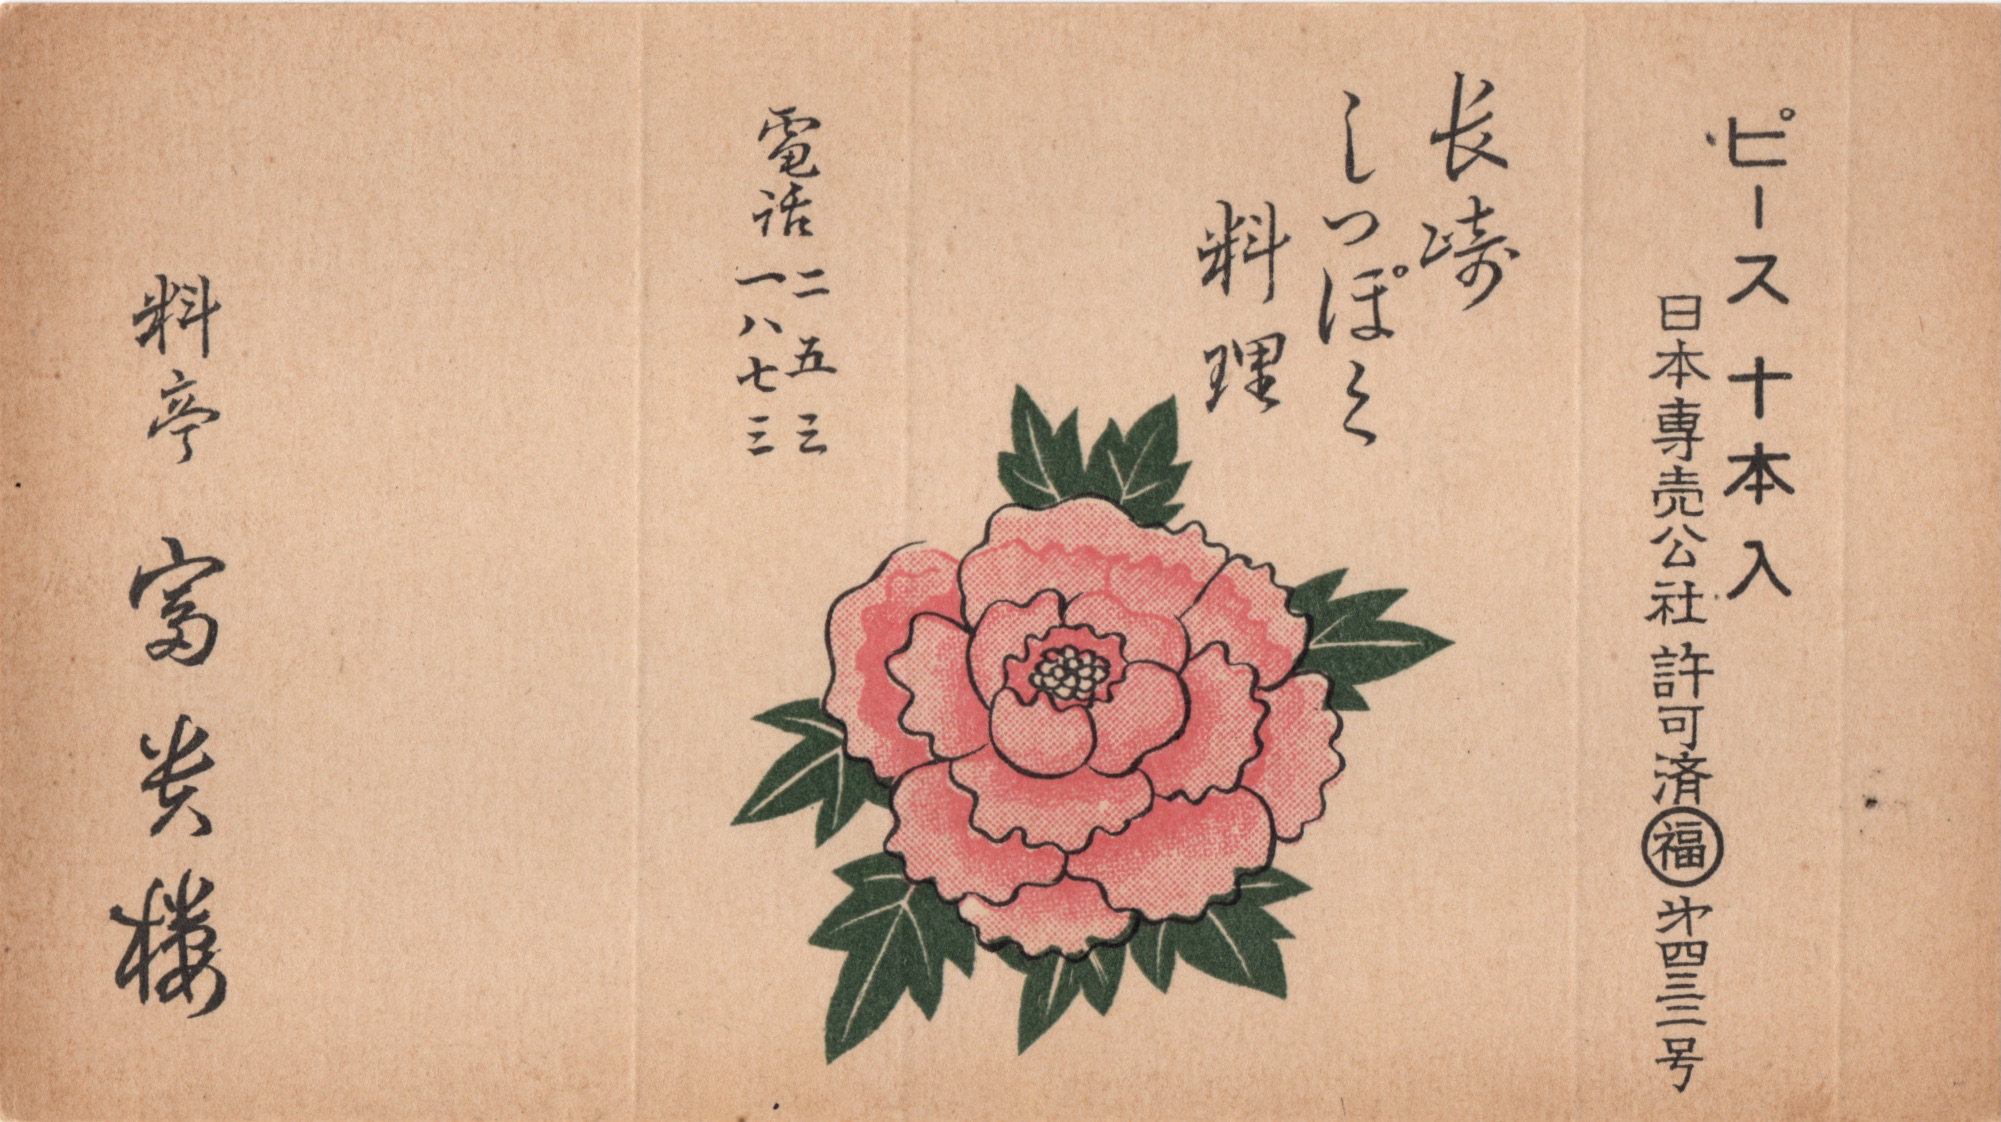 ピース十本入
日本専売公社許可済福㐧四三二号
長崎
しっぽく
料理
電話
二五三
一八七三
料亭 富貴楼